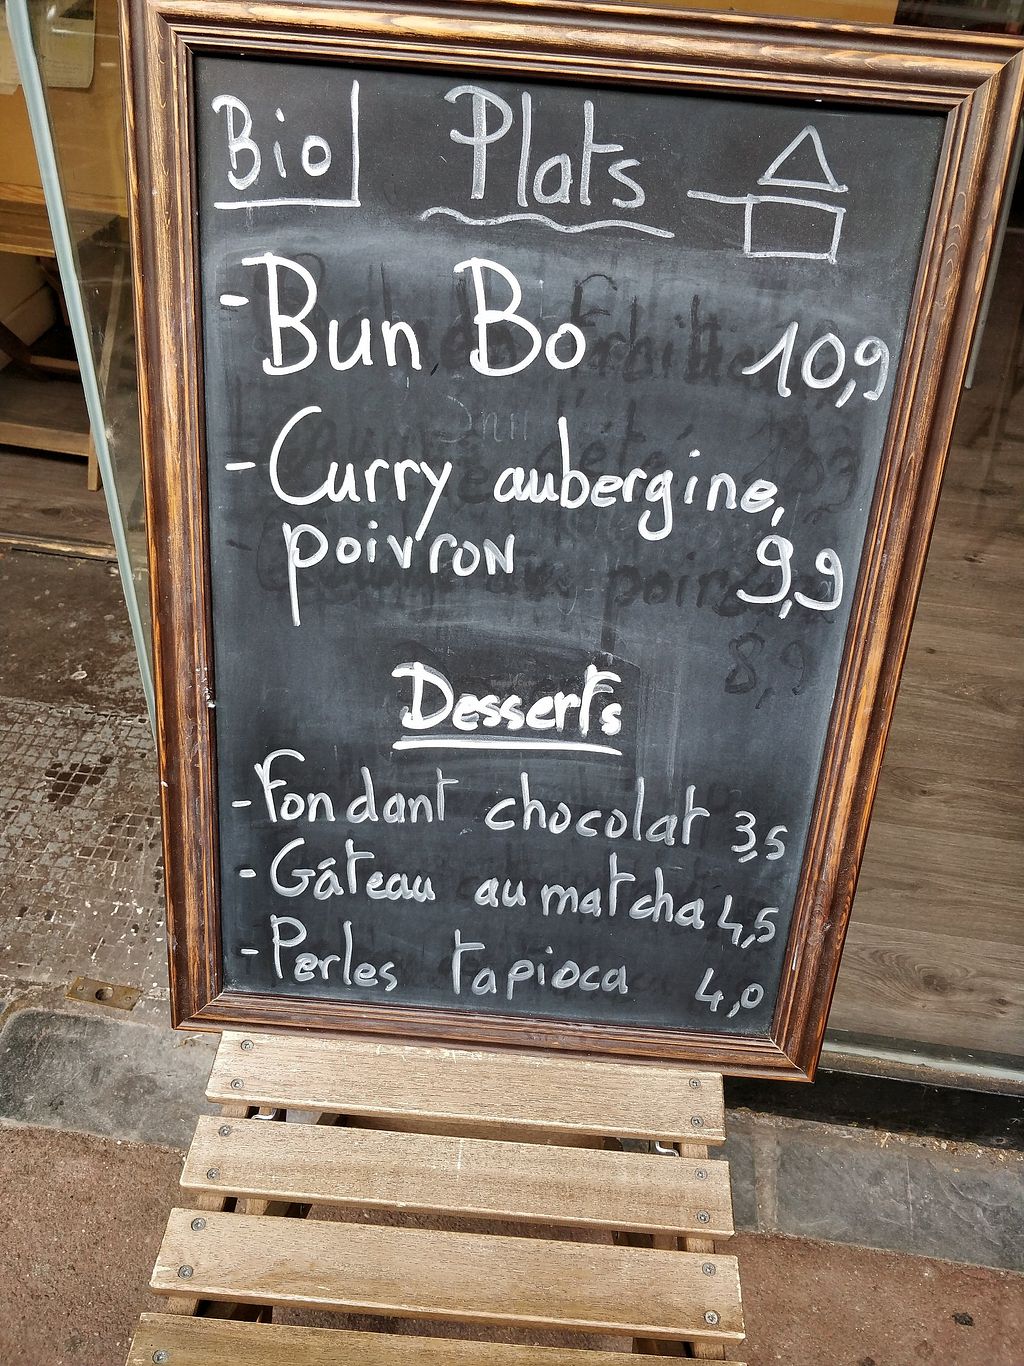 Bio Plats
- Bun Bo 10,9
- Curry aubergine,
poivron 9,9
Desserts
- Fondant chocolat 3,5
- Gâteau au matcha 4,5
- Perles tapioca 4,0